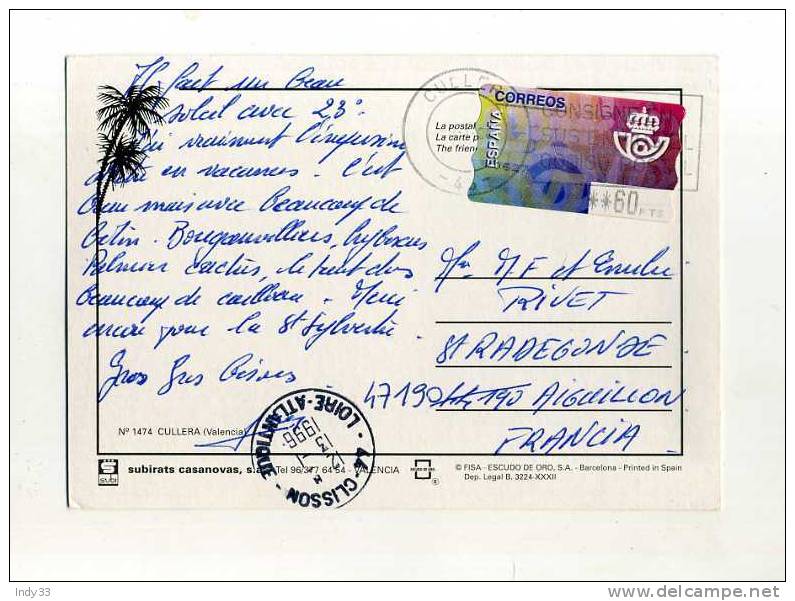 Il fait un beau
soleil avec 23°.
J'ai vraiment l'impression
d'être en vacances. C'est
beau mais avec beaucoup de
béton. Bougainvilliers, hybiscus
Palmier cactus, le tout dans
beaucoup de cailloux. Merci
encore pour la St Sylvestre.
Gros Gros Bisous
Nº 1474 CULLERA (Valencia)
SUBI
subirats casanovas, s.a. Tel 96/377 64 54 - VALENCIA
CULLE
- 4
La postal
La carte p
The frien
CORREOS
ESPAÑA
CONSIGNE
**60 PTS
M.F et
RIVET
St RADEGONDE
47190 AIGUILLON
FRANCIA
44-CLISSON - LOIRE-ATLANTIQUE
13 -1
1996
© FISA - ESCUDO DE ORO, S.A. - Barcelona - Printed in Spain
Dep. Legal B. 3224-XXXII
Indy33
delcampe.net